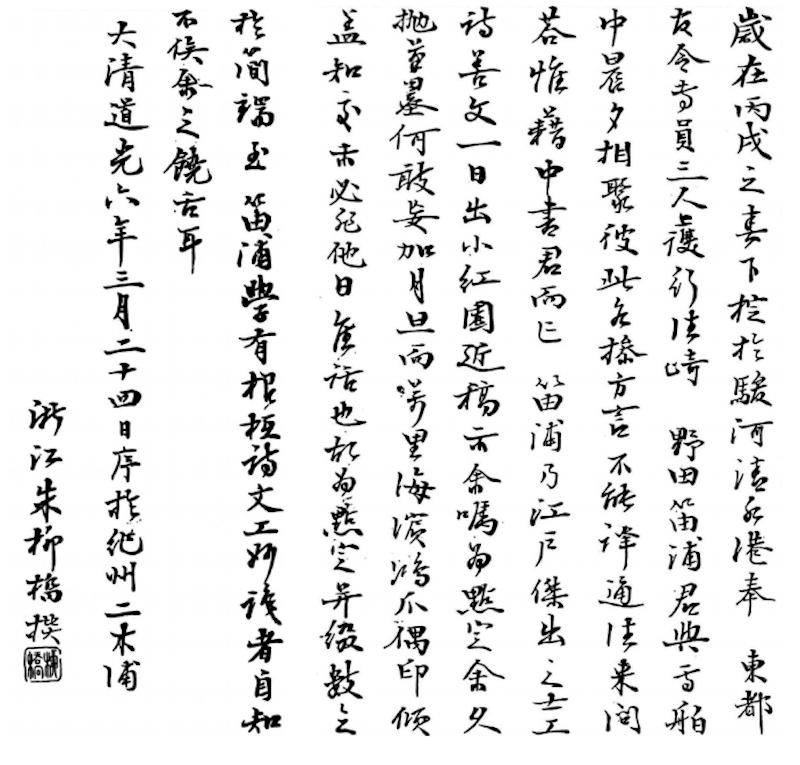 歲在丙戌之春下椗於駿河清水港奉 東都
令專員三人護行往崎 野田笛浦君與焉舶
中晨夕相聚彼此各操方言不能譯通往來問
荅惟藉中書君而已 笛浦乃江戶傑出之士工
詩善文一日出小紅園近稿示余囑為點定余久
拋筆墨何敢妄加月旦而萬里海濱鴻爪偶印傾
盖知交未必非他日佳話也故為點定并綴數言
於簡端至 笛浦學有根柢詩文工妙讀者自知
不俟余之饒舌耳
大清道光六年三月二十四日序於紀州二木浦
浙江朱柳橋撰